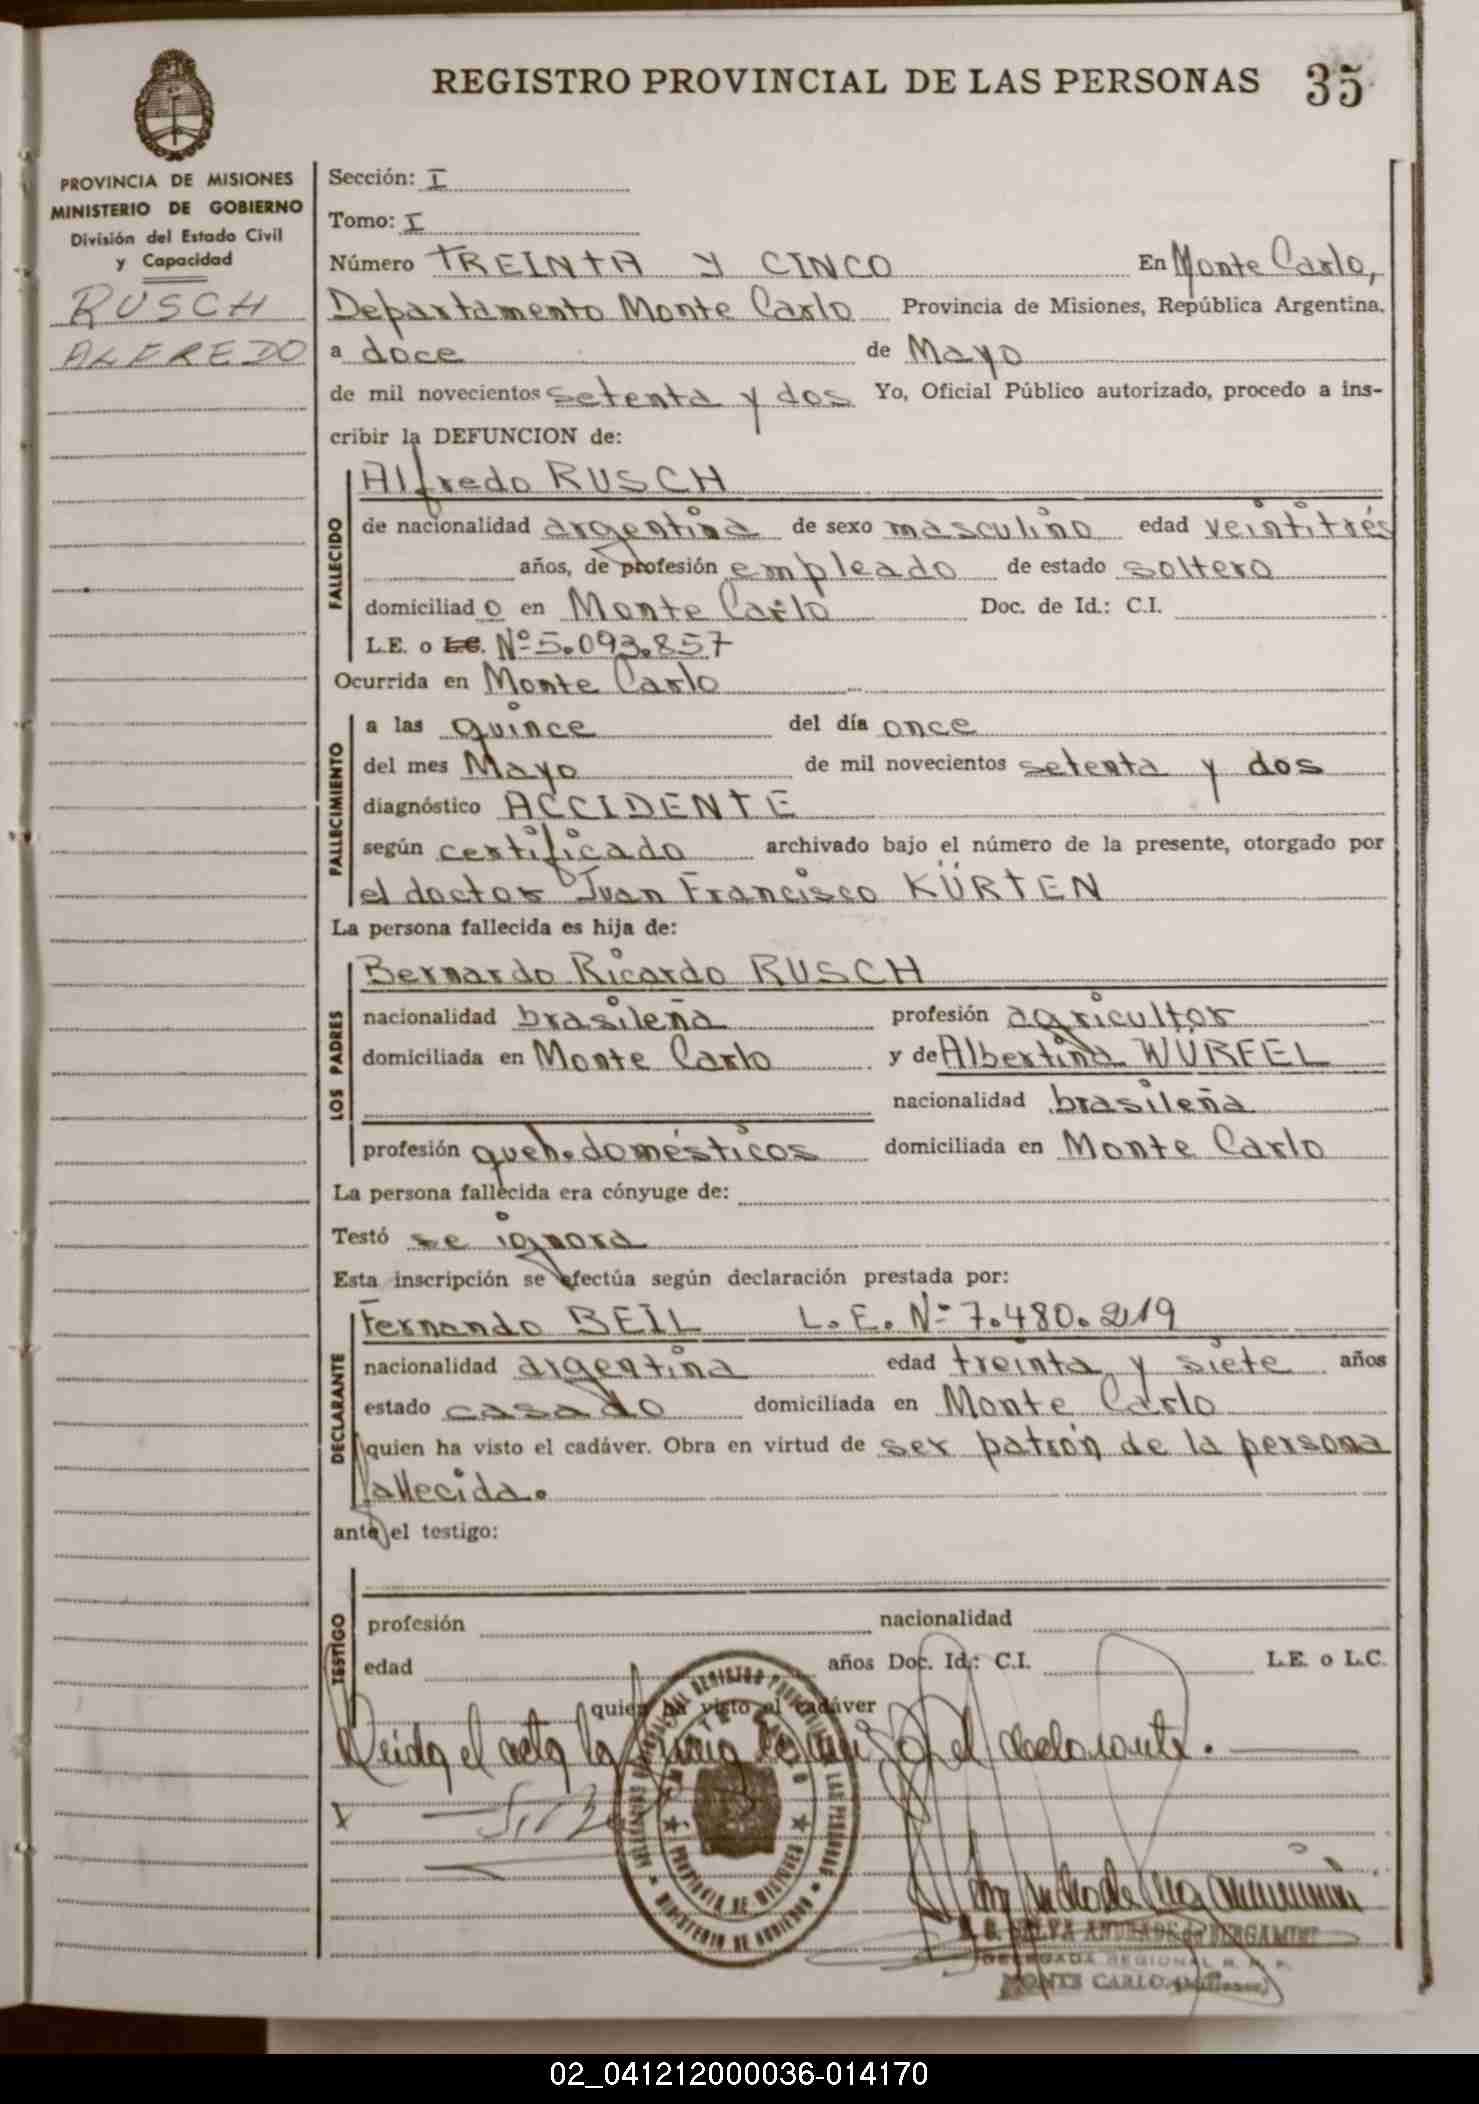 REGISTRO PROVINCIAL DE LAS PERSONAS 35
PROVINCIA DE MISIONES
MINISTERIO DE GOBIERNO
División del Estado Civil
y Capacidad
RUSCH
ALFREDO
Sección: I
Tomo: I
Número TREINTA Y CINCO En Monte Carlo,
Departamento Monte Carlo Provincia de Misiones, República Argentina,
a doce de Mayo
de mil novecientos setenta y dos Yo, Oficial Público autorizado, procedo a ins-
cribir la DEFUNCION de:
FALLECIDO
Alfredo RUSCH
de nacionalidad argentina de sexo masculino edad veintitrés
años, de profesión empleado de estado soltero
domiciliado en Monte Carlo Doc. de Id.: C.I.
L.E. o L.C. Nº 5.093.857
Ocurrida en Monte Carlo
FALLECIMIENTO
a las quince del día once
del mes Mayo de mil novecientos setenta y dos
diagnóstico ACCIDENTE
según certificado archivado bajo el número de la presente, otorgado por
el doctor Juan Francisco KÜRTEN
La persona fallecida es hija de:
LOS PADRES
Bernardo Ricardo RUSCH
nacionalidad brasileña profesión agricultor
domiciliada en Monte Carlo y de Albertina WÜRFEL
nacionalidad brasileña
profesión queh. domésticos domiciliada en Monte Carlo
La persona fallecida era cónyuge de:
Testó se ignora
Esta inscripción se efectúa según declaración prestada por:
DECLARANTE
Fernando BEIL L.E. Nº 7.480.219
nacionalidad argentina edad treinta y siete años
estado casado domiciliada en Monte Carlo
quien ha visto el cadáver. Obra en virtud de ser patrón de la persona
fallecida.
ante el testigo:
TESTIGO
profesión nacionalidad
edad años Doc. Id.: C.I. L.E. o L.C.
quien ha visto el cadáver
Leida el acta la firma el declarante.
X
MONTE CARLO
PROVINCIA DE MISIONES
MINISTERIO DE GOBIERNO
SELVA ANDRADE de BERGAMINI
DELEGADA REGIONAL R. P. P.
MONTE CARLO (Misiones)
02_041212000036-014170